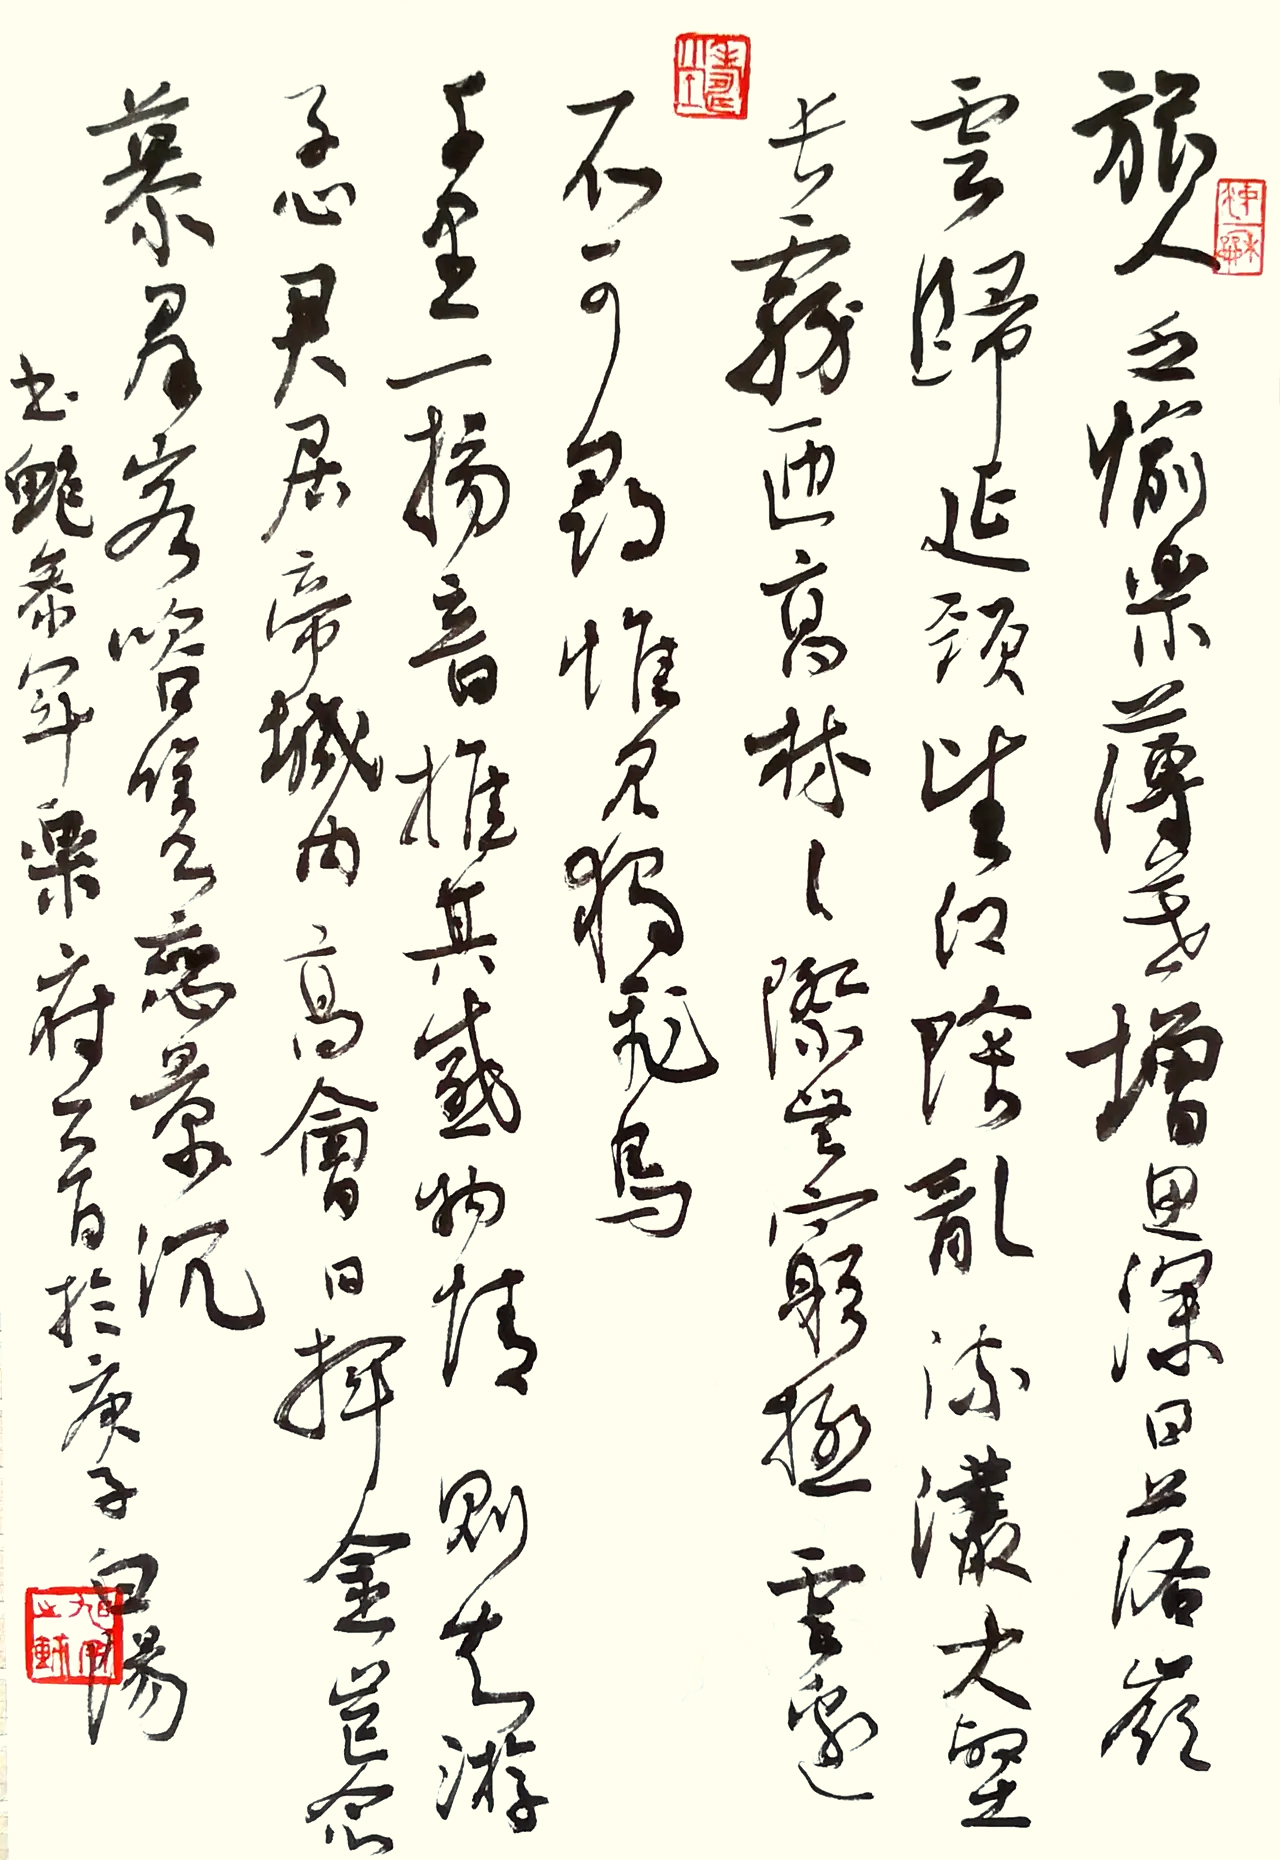 旅人乏愉樂薄暮增思深日落嶺
雲歸延頸望江陰亂流灇大壑
长霧匝高林々際無窮極雲邊
不可尋惟見獨飛鳥
千里一揚音推其感物情則知游
子心君居帝城内高會日揮金豈念
慕群客咨嗟戀景沉
书鮑參军樂府一首於庚子白陽